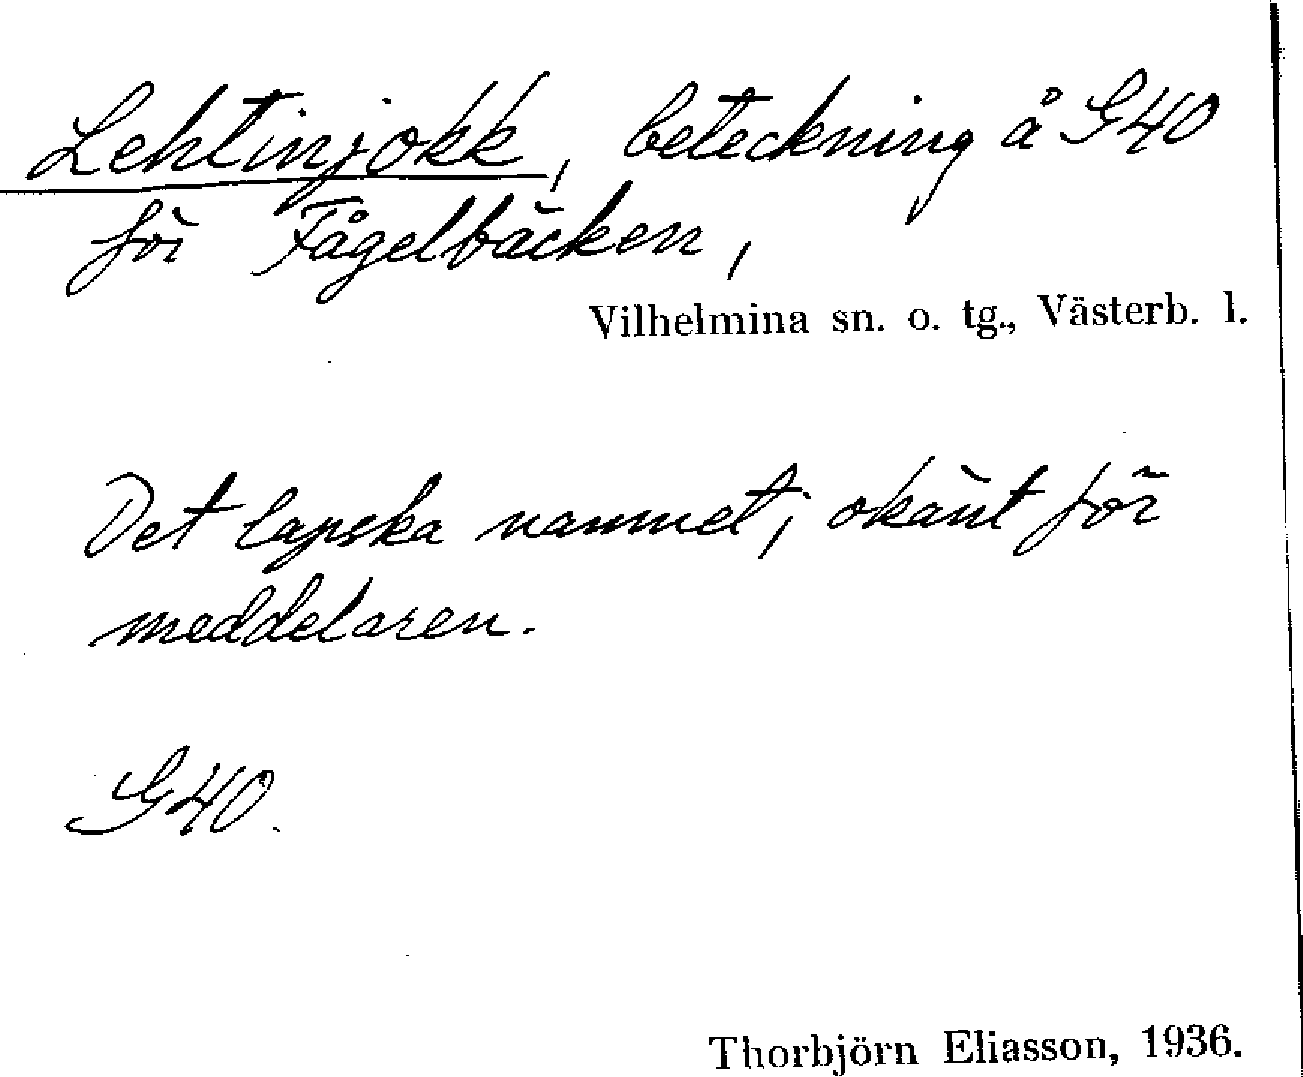 Lehtinjokk, beteckning å G40
för Fågelbäcken,
Vilhelmina sn. o. tg., Västerb. l.
Det lapska namnet; okänt för
meddelaren.
G40.
Thorbjörn Eliasson, 1936.